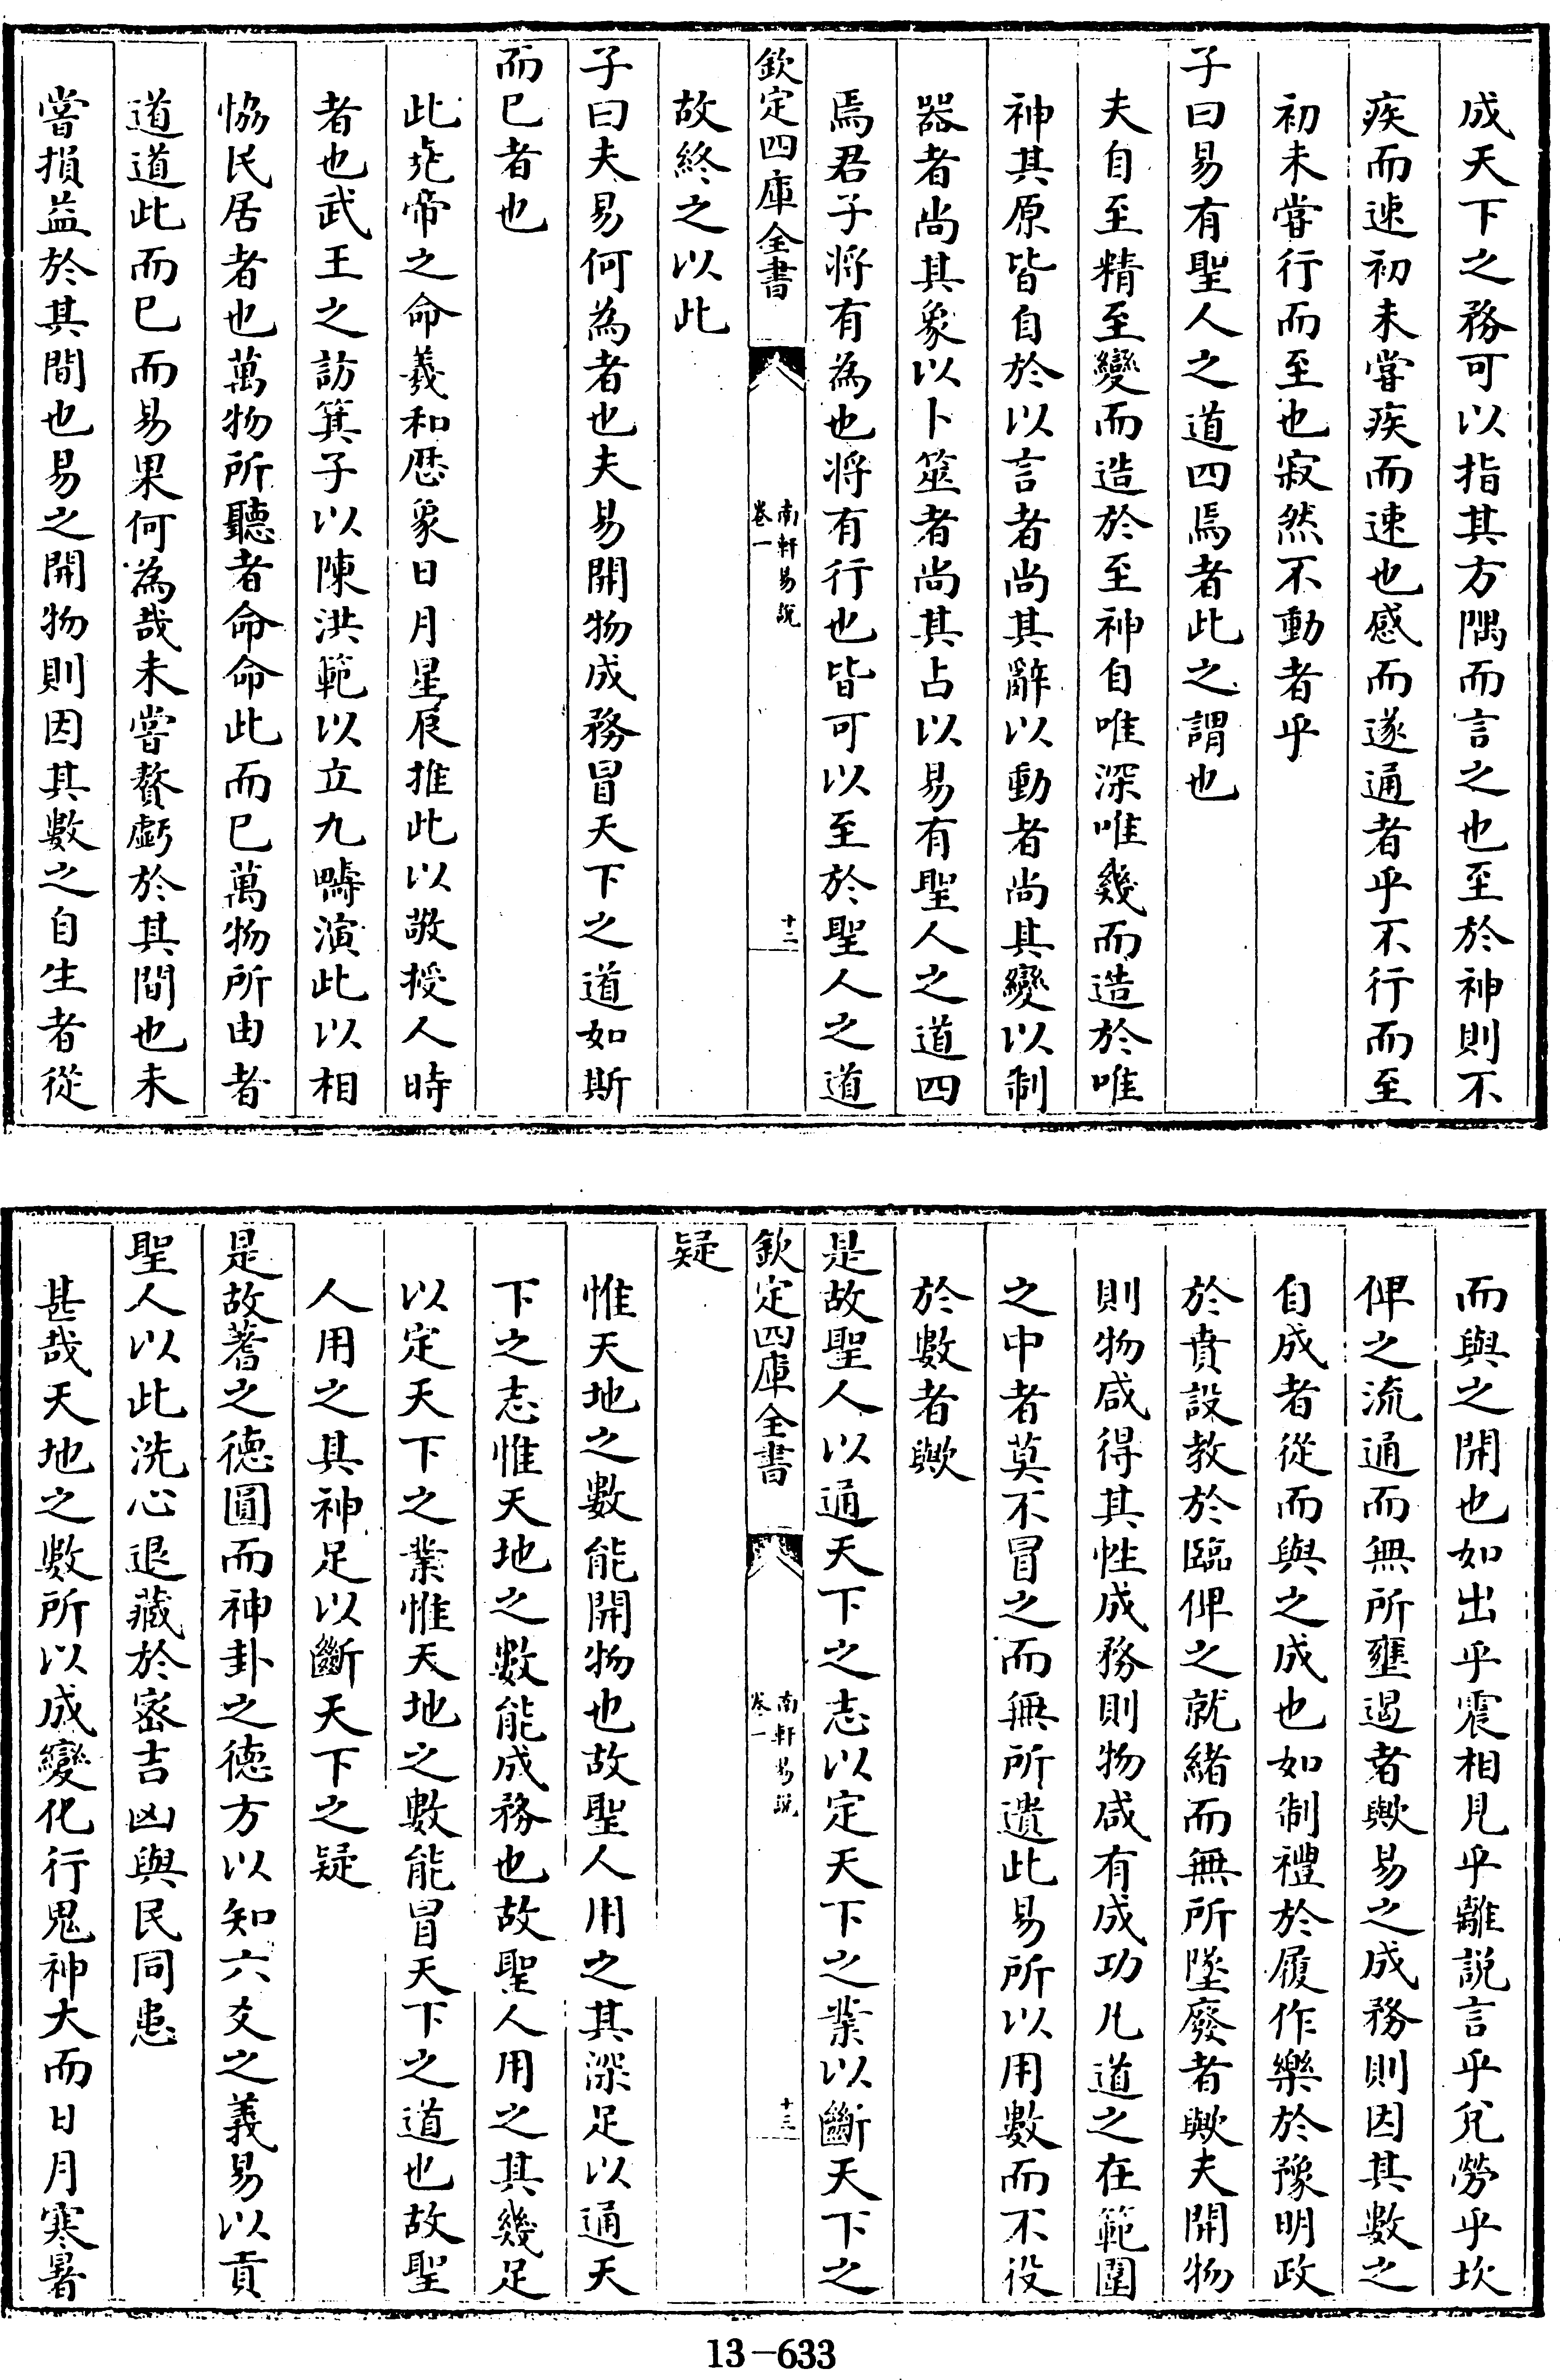 成天下之務可以指其方隅而言之也至於神則不
疾而速初未嘗疾而速也感而遂通者乎不行而至
初未嘗行而至也寂然不動者乎
子曰易有聖人之道四焉者此之謂也
夫自至精至變而造於至神自唯深唯幾而造於唯
神其原皆自於以言者尚其辭以動者尚其變以制
器者尚其象以卜筮者尚其占以易有聖人之道四
焉君子将有為也将有行也皆可以至於聖人之道
欽定四庫全書
南軒易說
卷一
十二
故終之以此
子曰夫易何為者也夫易開物成務冒天下之道如斯
而已者也
此堯帝之命羲和厯象日月星辰推此以敬授人時
者也武王之訪箕子以陳洪範以立九疇演此以相
恊民居者也萬物所聽者命命此而已萬物所由者
道道此而已而易果何為哉未嘗贅虧於其間也未
嘗損益於其間也易之開物則因其數之自生者從
而與之開也如出乎震相見乎離説言乎兌勞乎坎
俾之流通而無所壅遏者歟易之成務則因其數之
自成者從而與之成也如制禮於履作樂於豫明政
於賁設教於臨俾之就緒而無所墜廢者歟夫開物
則物咸得其性成務則物咸有成功凡道之在範圍
之中者莫不冒之而無所遺此易所以用數而不役
於數者歟
是故聖人以通天下之志以定天下之業以斷天下之
欽定四庫全書
南軒易說
卷一
十三
疑
惟天地之數能開物也故聖人用之其深足以通天
下之志惟天地之數能成務也故聖人用之其幾足
以定天下之業惟天地之數能冒天下之道也故聖
人用之其神足以斷天下之疑
是故蓍之德圓而神卦之德方以知六爻之義易以貢
聖人以此洗心退藏於密吉凶與民同患
甚哉天地之數所以成變化行鬼神大而日月寒暑
13-633